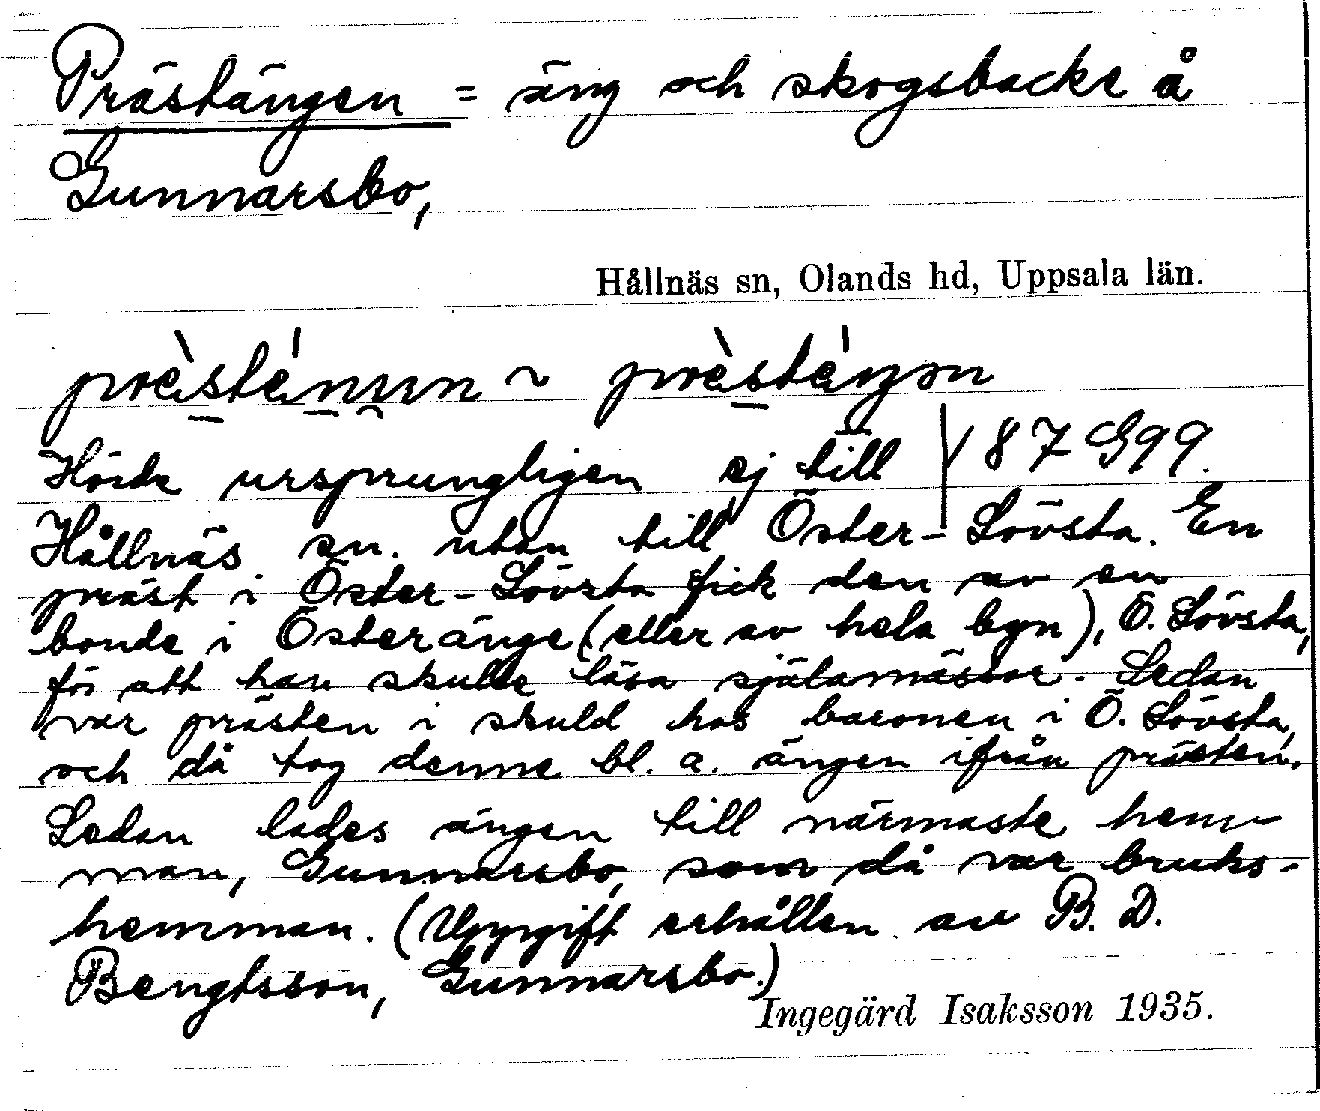 Prästängen = äng och skogsbacke å
Gunnarsbo,
Hållnäs sn, Olands hd, Uppsala län.
Hörde ursprungligen ej till 87 G99.
Hållnäs sn. utan till Öster-Lövsta. En
präst i Öster-Lövsta fick den av en
bonde i Österänge (eller av hela byn), Ö. Lövsta,
för att han skulle läsa själamässor. Sedan
var prästen i skuld hos baronen i Ö. Lövsta,
och då tog denne bl. a. ängen ifrån prästen.
Sedan lades ängen till närmaste hem-
man, Gunnarsbo, som då var bruks-
hemman. (Uppgift erhållen av B. D.
Bengtsson, Gunnarsbo.)
Ingegärd Isaksson 1935.